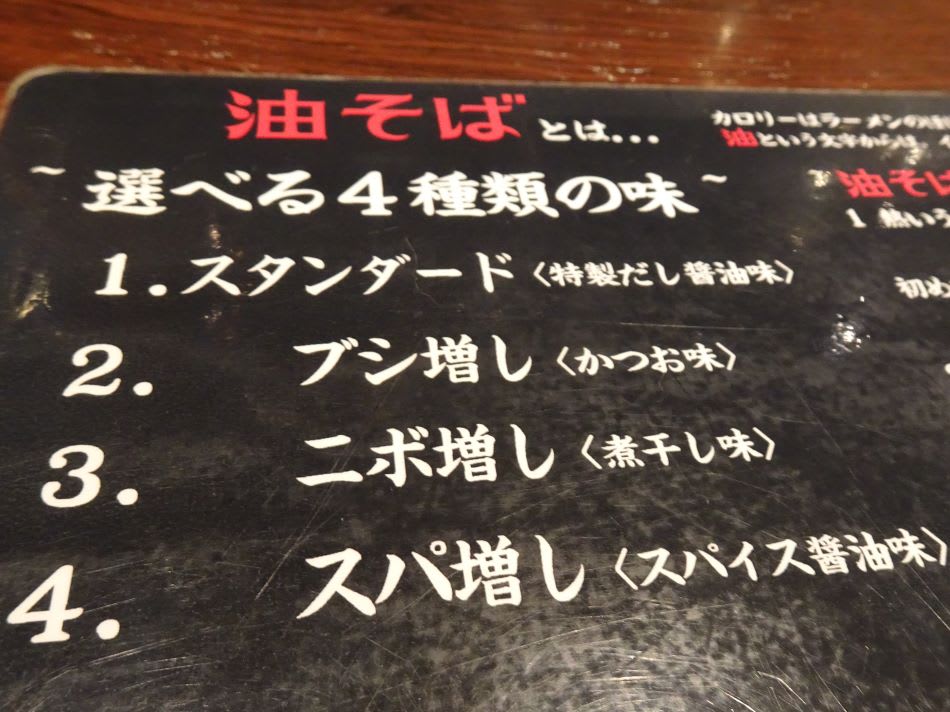 油そば とは...
~ 選べる4種類の味 ~
1. スタンダード〈特製だし醤油味〉
2. ブシ増し〈かつお味〉
3. ニボ増し〈煮干し味〉
4. スパ増し〈スパイス醤油味〉
カロリーはラーメンの
油という文字からは
油そば
1 熱い
初め